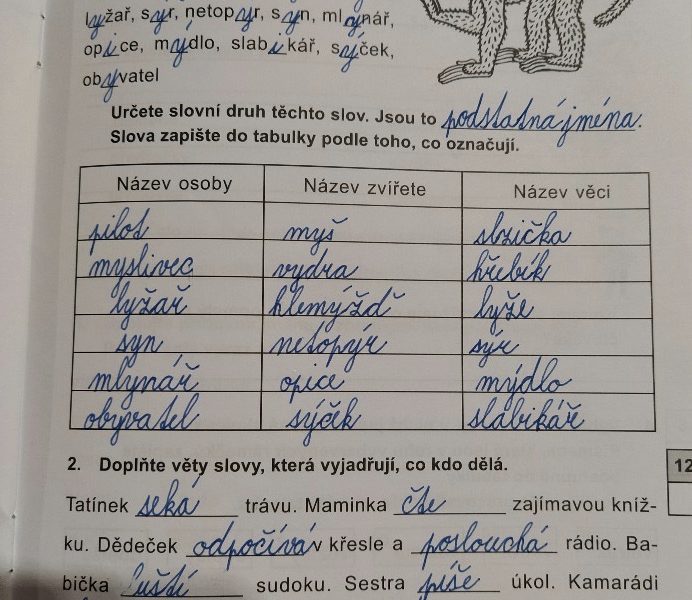 lyžař, sýr, netopýr, syn, mlynář,
opice, mýdlo, slabikář, sýček,
obyvatel
Určete slovní druh těchto slov. Jsou to podstatná jména.
Slova zapište do tabulky podle toho, co označují.
Název osoby Název zvířete Název věci
pilot myš slzička
myslivec vydra hřebík
lyžař hlemýžď lyže
syn netopýr sýr
mlynář opice mýdlo
obyvatel sýček slabikář
2. Doplňte věty slovy, která vyjadřují, co kdo dělá.
12
Tatínek seká trávu. Maminka čte zajímavou kníž-
ku. Dědeček odpočívá v křesle a poslouchá rádio. Ba-
bička luští sudoku. Sestra píše úkol. Kamarádi